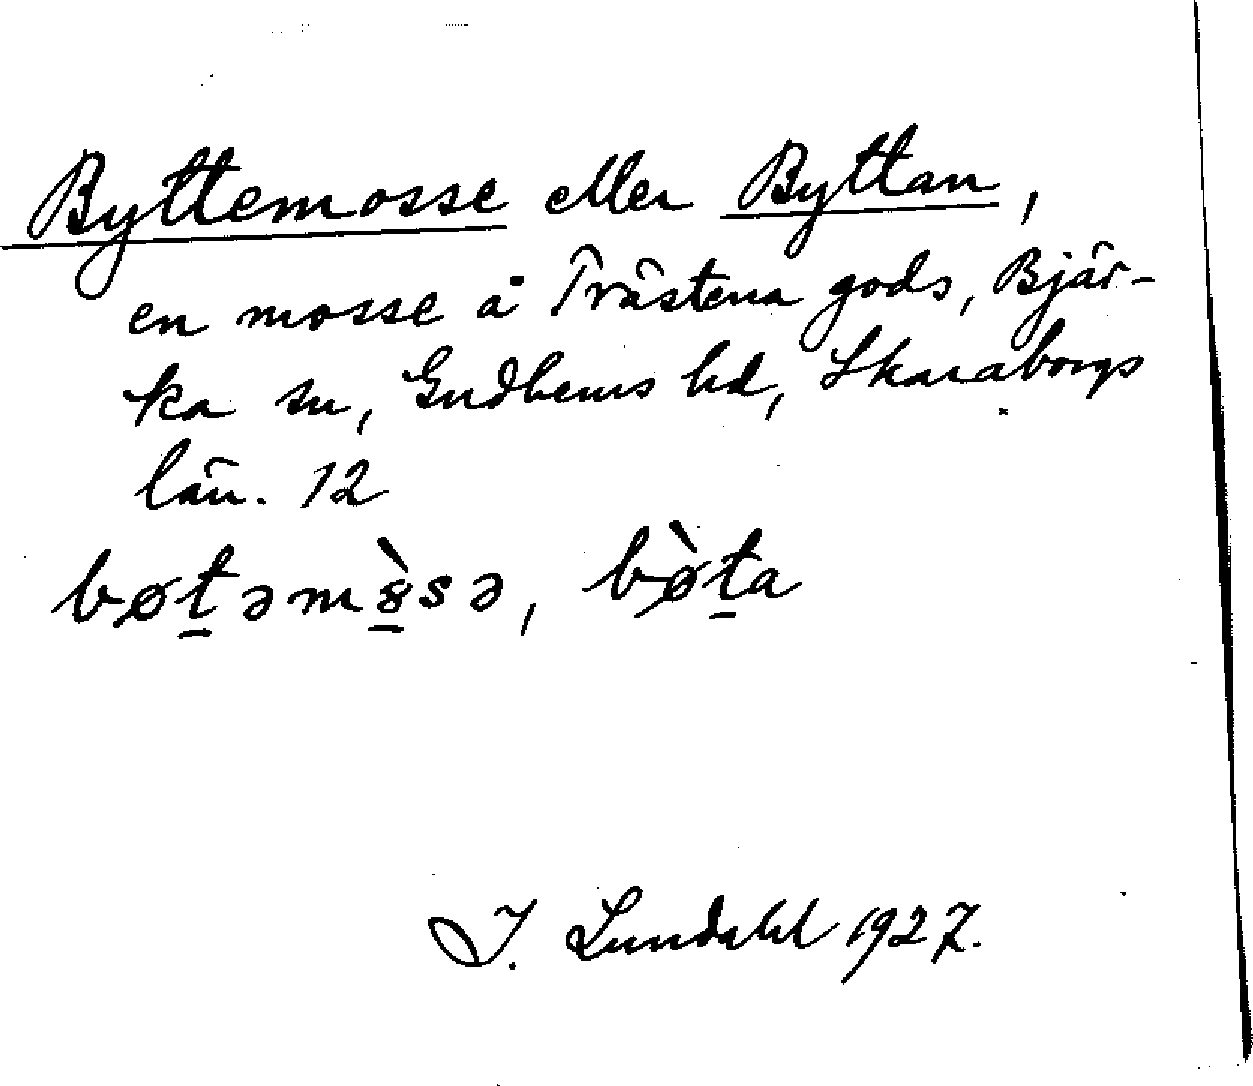 Byttemosse eller Byttan,
en mosse å Trästena gods, Bjär-
ka sn, Gudhems hd, Skaraborgs
län. 12
bøt̠əmò̠sə, bø̀t̠a
I. Lundahl 1927.